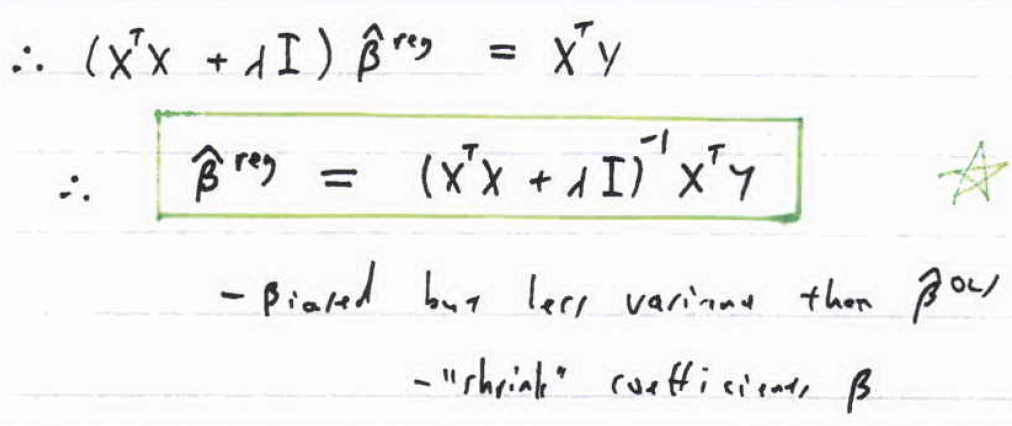 ∴ (XᵀX + λI) β̂ʳᵉᵍ = XᵀY
∴ β̂ʳᵉᵍ = (XᵀX + λI)⁻¹ XᵀY
- Biased but less variance than β̂ᴼᴸˢ
- "shrink" coefficients β